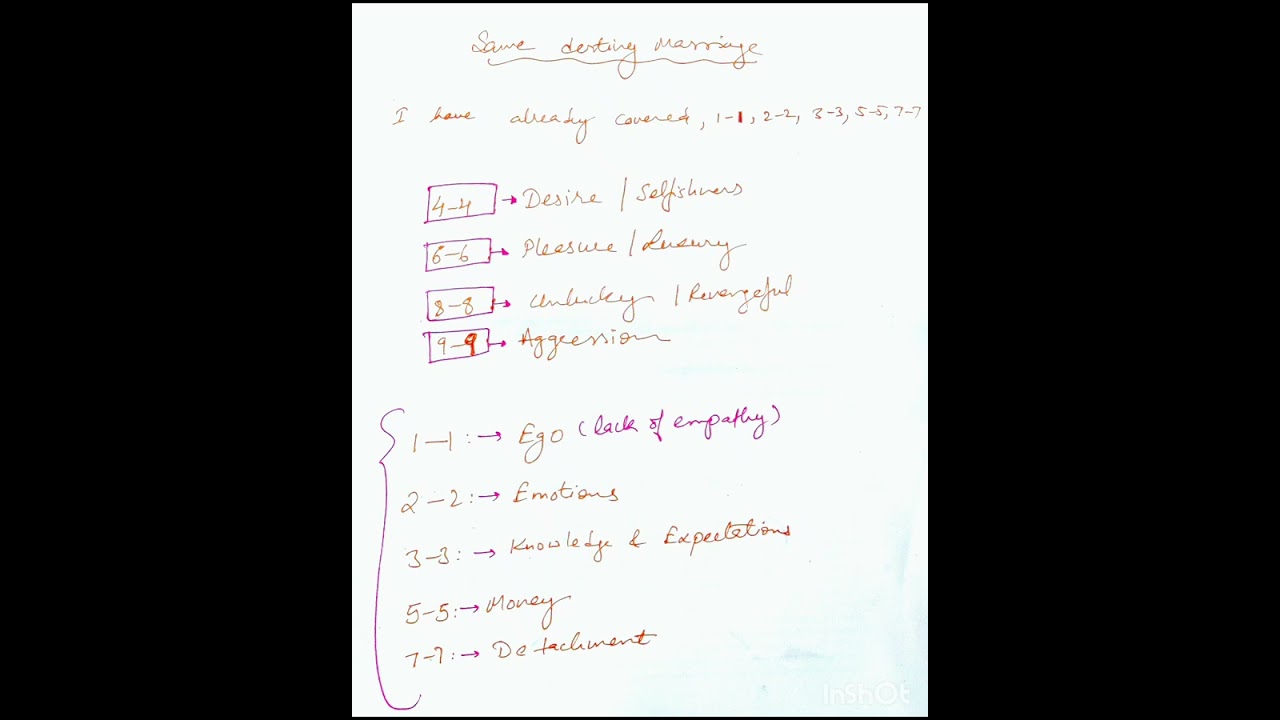 Same destiny Marriage
I have already covered, 1-1, 2-2, 3-3, 5-5, 7-7
4-4 → Desire / Selfishness
6-6 → Pleasure / Luxury
8-8 → Unlucky / Revengeful
9-9 → Aggression
1-1 :→ Ego (lack of empathy)
2-2 :→ Emotions
3-3 :→ Knowledge & Expectations
5-5 :→ Money
7-7 :→ Detachment
InShOt